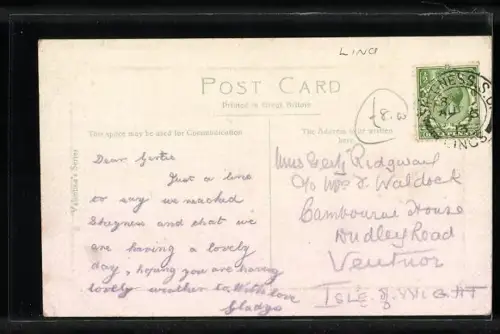 LINO
POST CARD
Printed in Great Britain
£8.00
This space may be used for Communication
The Address to be written
here.
Valentine's Series
SKEGNESS S.O.
LINCS
Dear Gertie
Just a line
to say we reached
Skegness and that we
are having a lovely
day, hoping you are having
lovely weather to. With love
Gladys
Miss Gerty Ridgward
C/o Mrs J. Waldock
Cambourne House
Dudley Road
Ventnor
ISLE of WIGHT